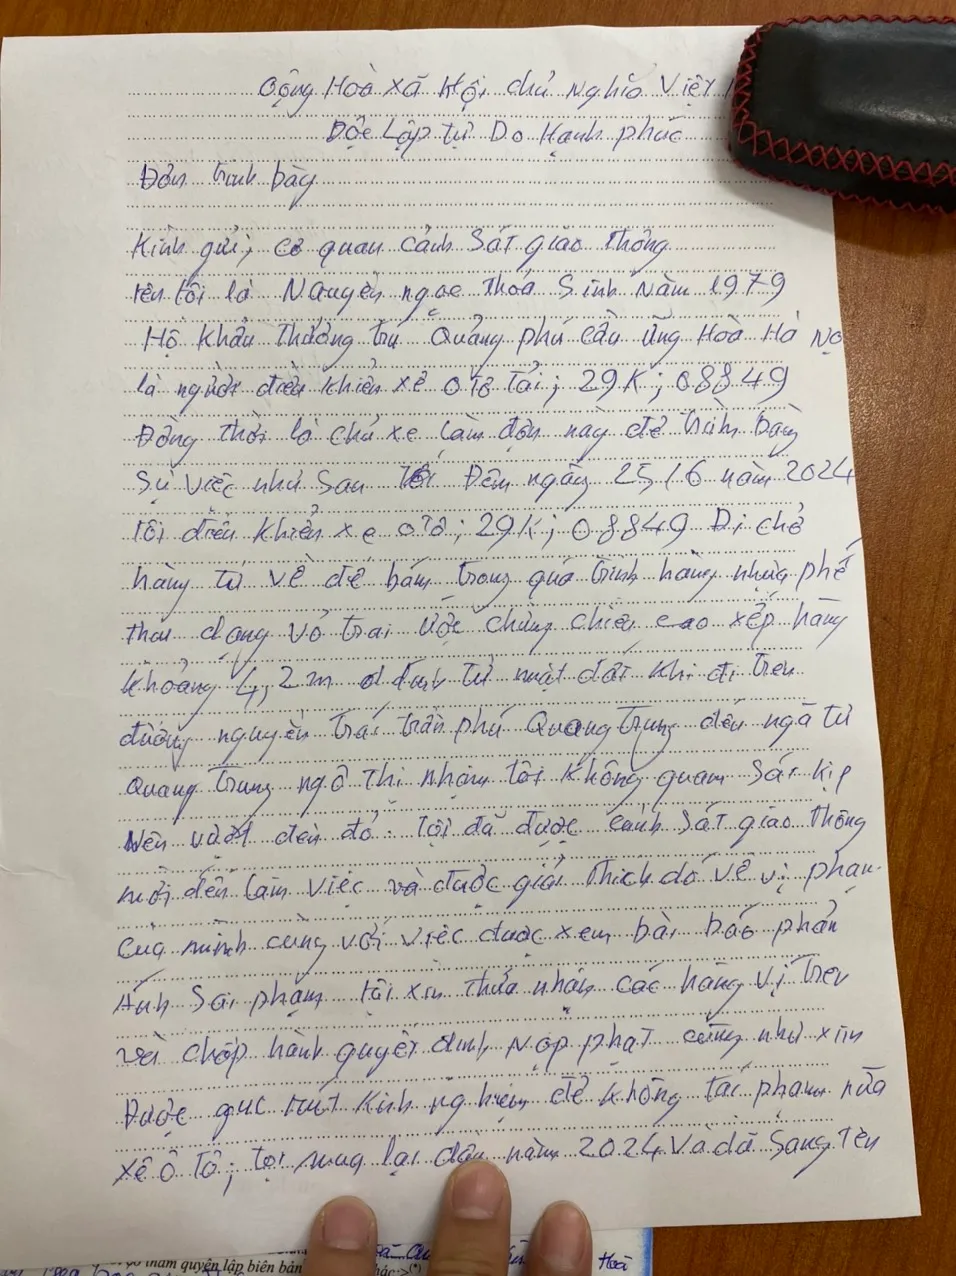 Cộng Hoà xã Hội chủ Nghĩa Việt
Độc Lập tự Do Hạnh phúc
Đơn trình bày
Kính gửi; cơ quan cảnh Sát giao thông
tên tôi là Nguyễn ngọc Thoá Sinh Năm 1979
Hộ Khẩu Thường trú Quảng phú cầu ứng Hoà Hà Nộ
là người điều khiển xe ô tô Tải; 29K; 08849
Đồng thời là chủ xe làm đơn này để trình bày
Sự việc như Sau Tối Đêm ngày 25/6 năm 2024
Tôi điều khiển xe ô tô; 29K; 08849 Đi chở
hàng từ về để bấm trong quá trình hàng nhựa phế
thải dạng vỏ trai ước chừng chiều cao xếp hàng
khoảng 4,2m từ mặt đất khi đi trên
đường nguyễn trãi trần phú Quang trung đến ngã tư
Quang trung ngô Thì nhậm tôi không quan Sát kịp
Nên vượt đèn đỏ. Tôi đã được cảnh Sát giao thông
mời đến làm việc và được giải thích về vi phạm
của mình cùng với việc được xem bài báo phản
Ánh Sai phạm tôi xin thừa nhận các hàng vi trên
và chấp hành quyết định Nộp phạt cũng như xin
Được rút kinh nghiệm để không tái phạm nữa
xe ô tô; tôi mua lại đầu năm 2024 Và đã Sang Tên
thẩm quyền lập biên bản
khác:(*)
Hoà